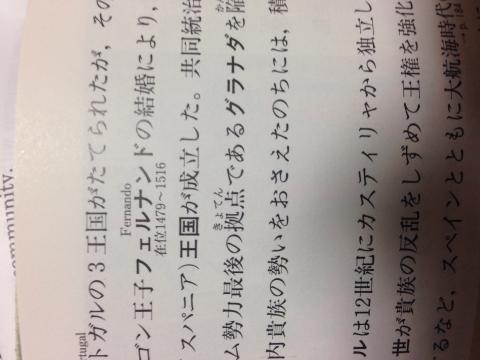 community.
rtugal
トガルの3王国がたてられたが，その
Fernando
ゴン王子フェルナンドの結婚により，
在位1479〜1516
スパニア)王国が成立した。共同統治
きょてん
ム勢力最後の拠点であるグラナダを陥
内貴族の勢いをおさえたのちには，積
ルは12世紀にカスティリャから独立し
世が貴族の反乱をしずめて王権を強化
るなど，スペインとともに大航海時代